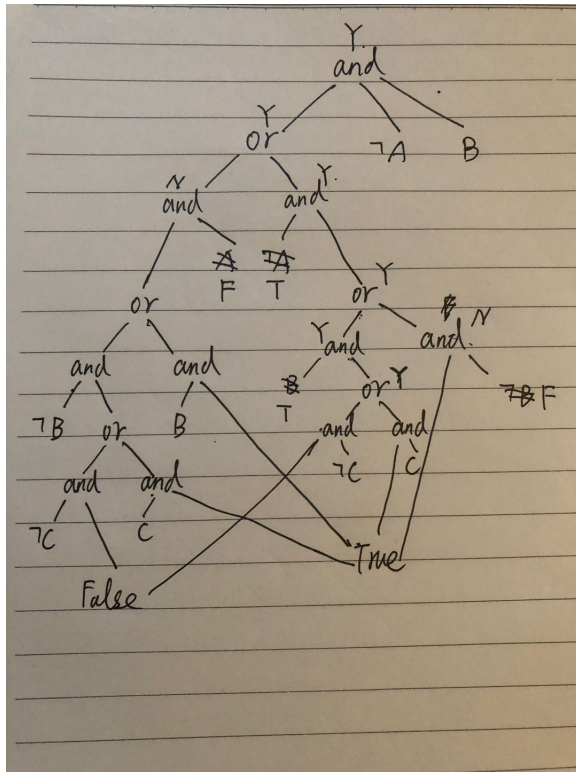 Y
and
Y
or ¬A B
N Y
and and
A ¬A
F T
or or Y B
Y and and N
and and B or Y ¬B F
¬B or B T and and
and and ¬C C
¬C C
True
False